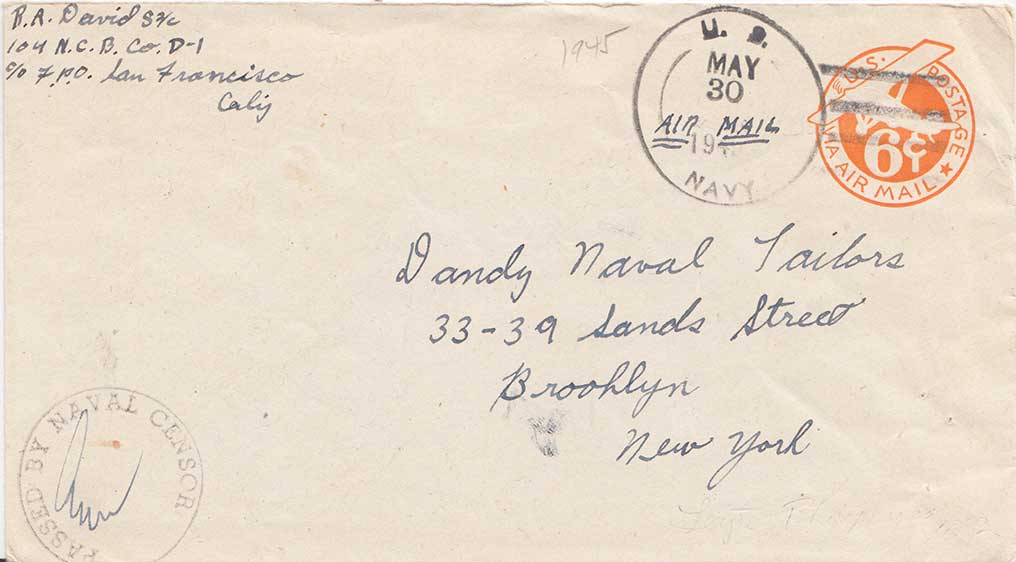 R.A. David S2/c
104 N.C.B. Co. D-1
c/o F.P.O. San Francisco
Calif
1945
U. S.
MAY
30
AIR MAIL
19
NAVY
U.S. POSTAGE
6¢
VIA AIR MAIL
Dandy Naval Tailors
33-39 Sands Street
Brooklyn
New York
PASSED BY NAVAL CENSOR